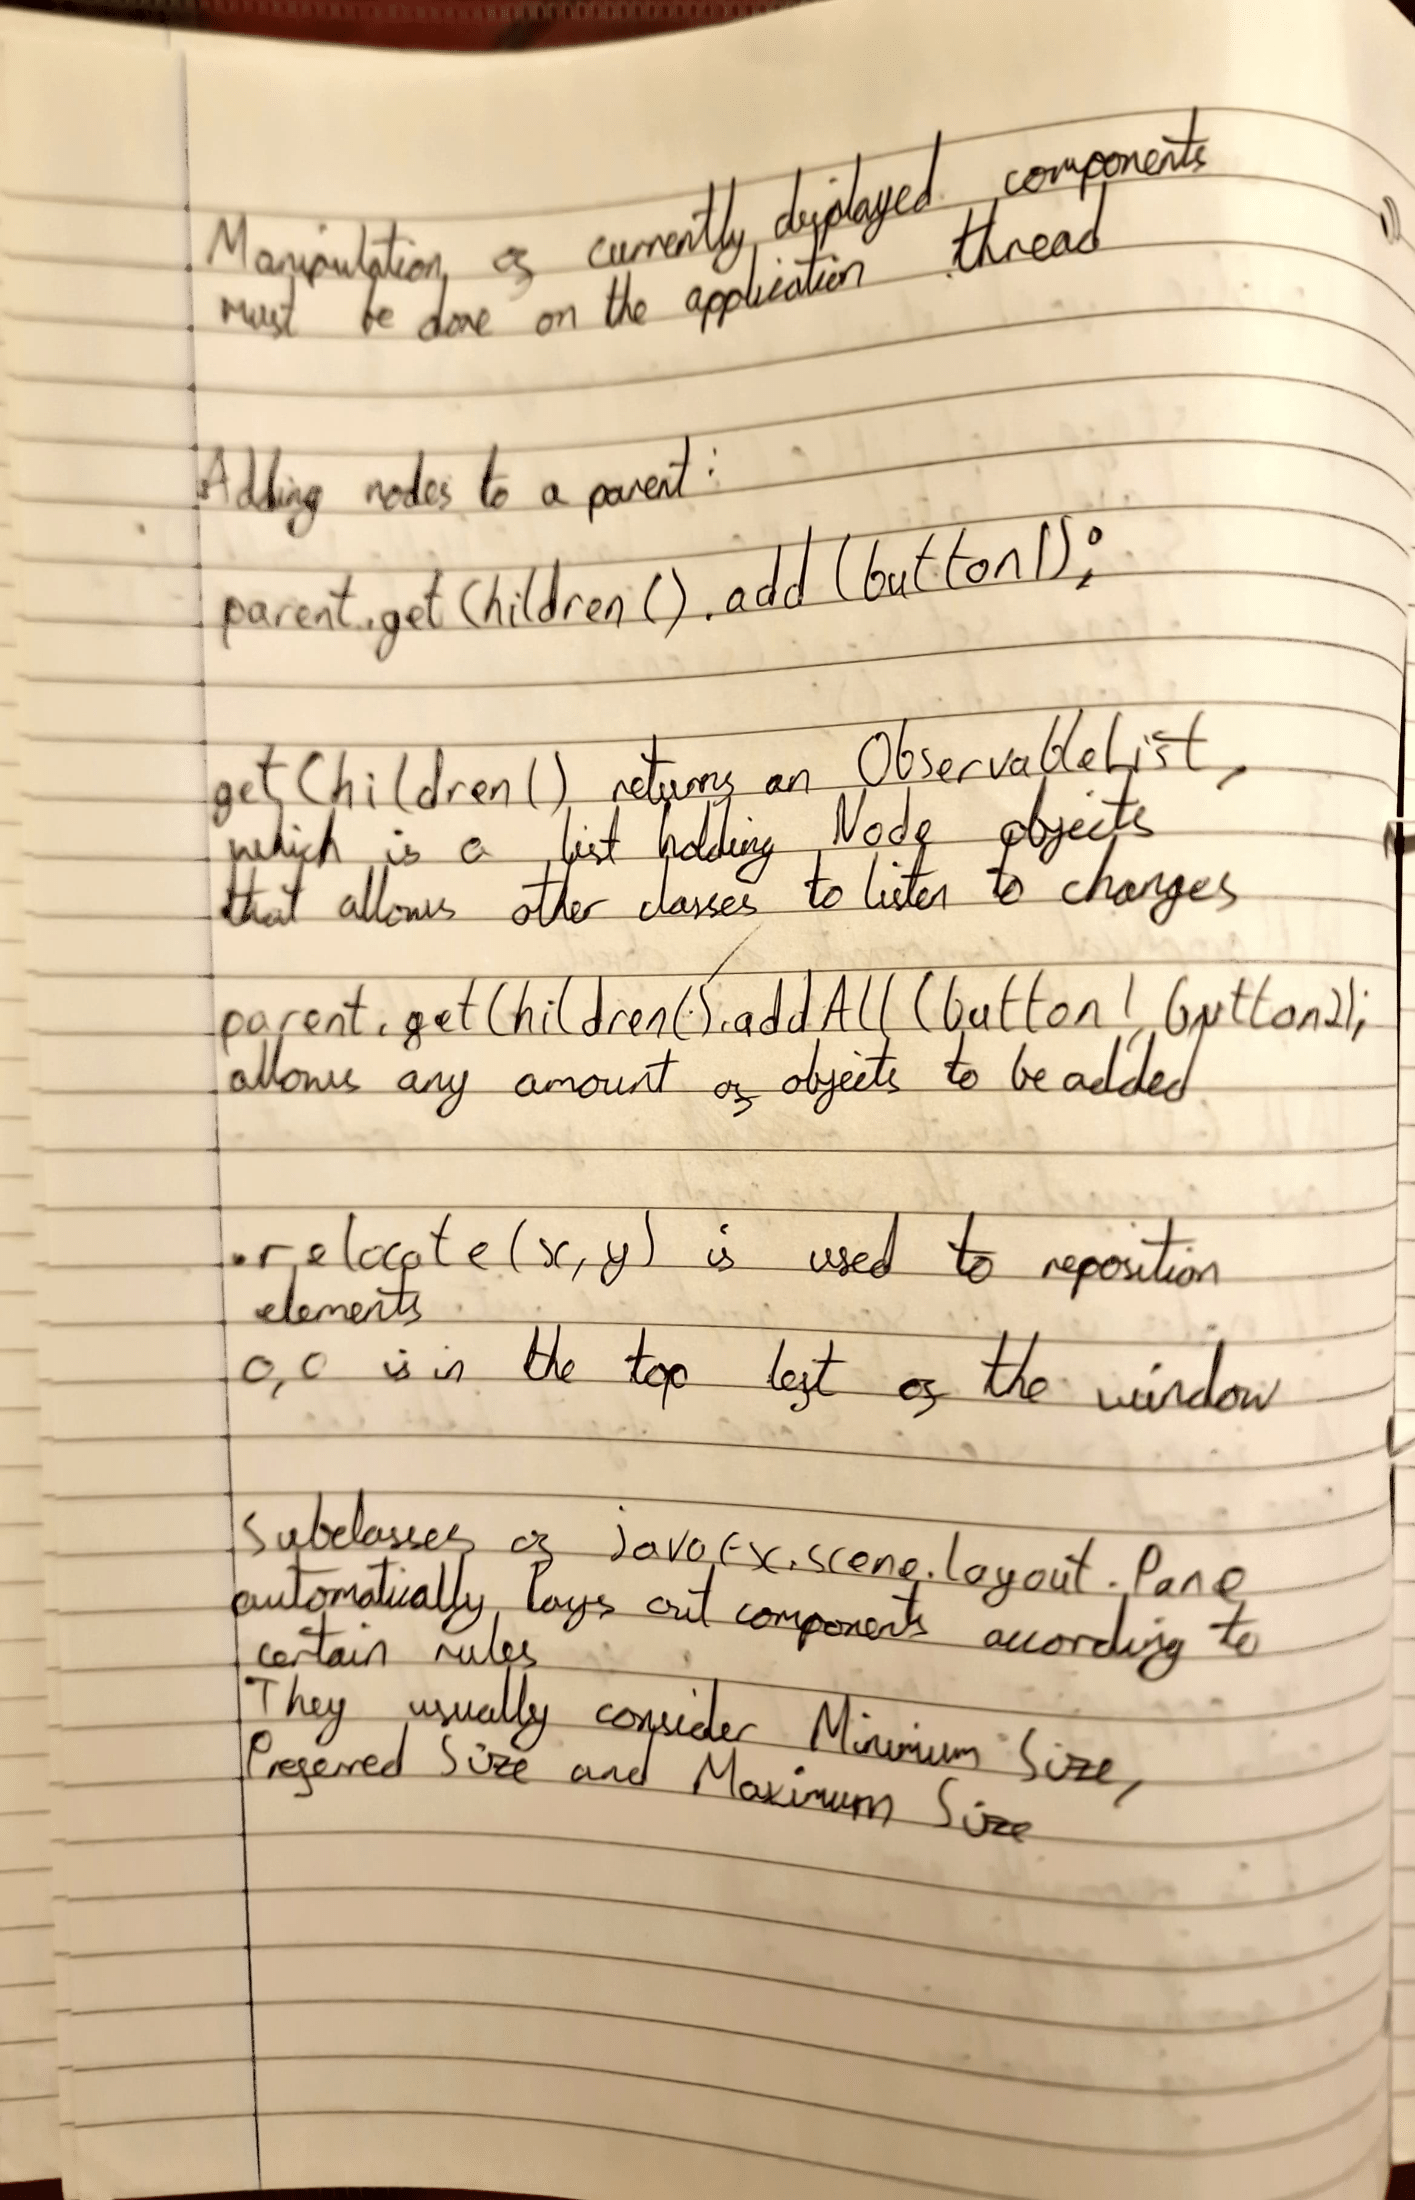 Manipulation of currently displayed components
must be done on the application thread
Adding nodes to a parent:
parent.getChildren().add(button1);
getChildren() returns an ObservableList,
which is a list holding Node objects
that allows other classes to listen to changes
parent.getChildren().addAll(button1, button2);
allows any amount of objects to be added
.relocate(x,y) is used to reposition
elements
0,0 is in the top left of the window
Subclasses of javafx.scene.layout.Pane
automatically lays out components according to
certain rules
They usually consider Minimum Size,
Preferred Size and Maximum Size